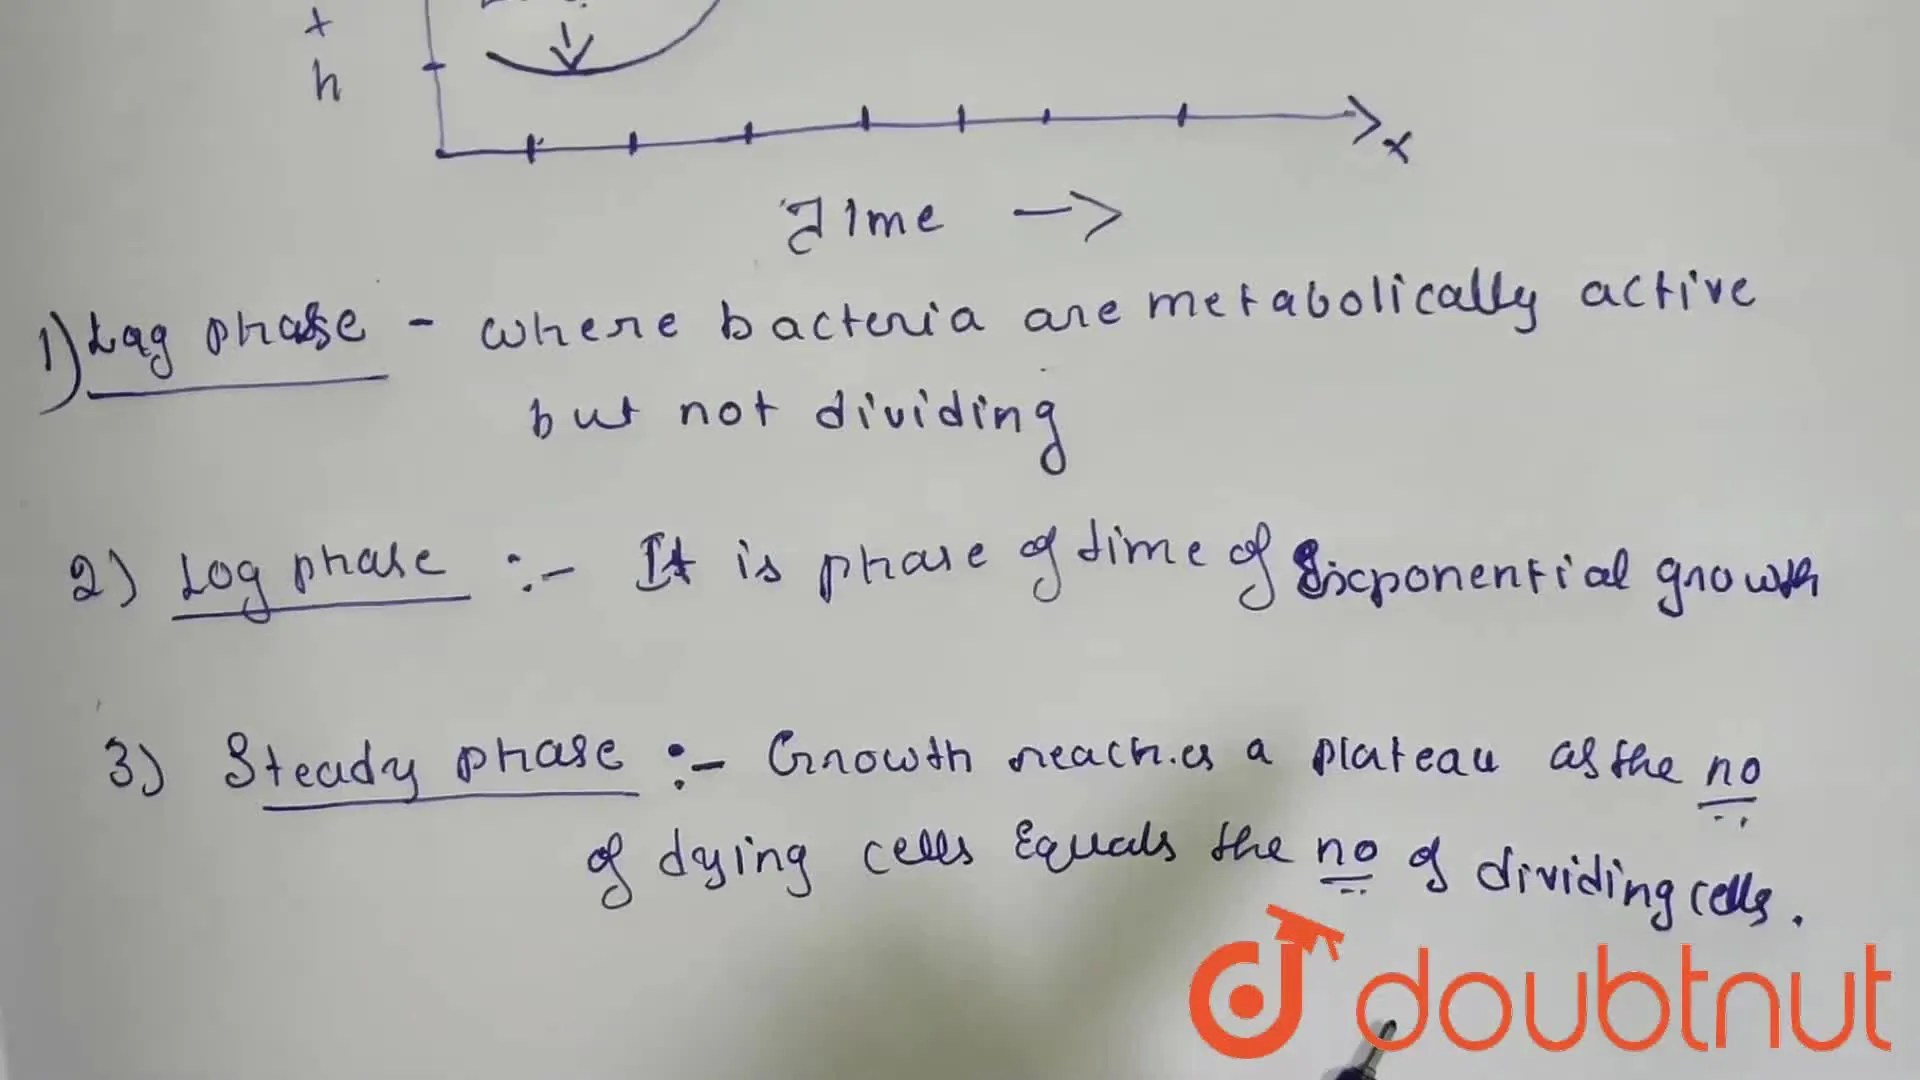 t
h
x
Time →
1) Lag phase - where bacteria are metabolically active
but not dividing
2) Log phase :- It is phase of time of Exponential growth
3) Steady phase :- Growth reaches a plateau as the no
of dying cells Equals the no of dividing cells.
doubtnut